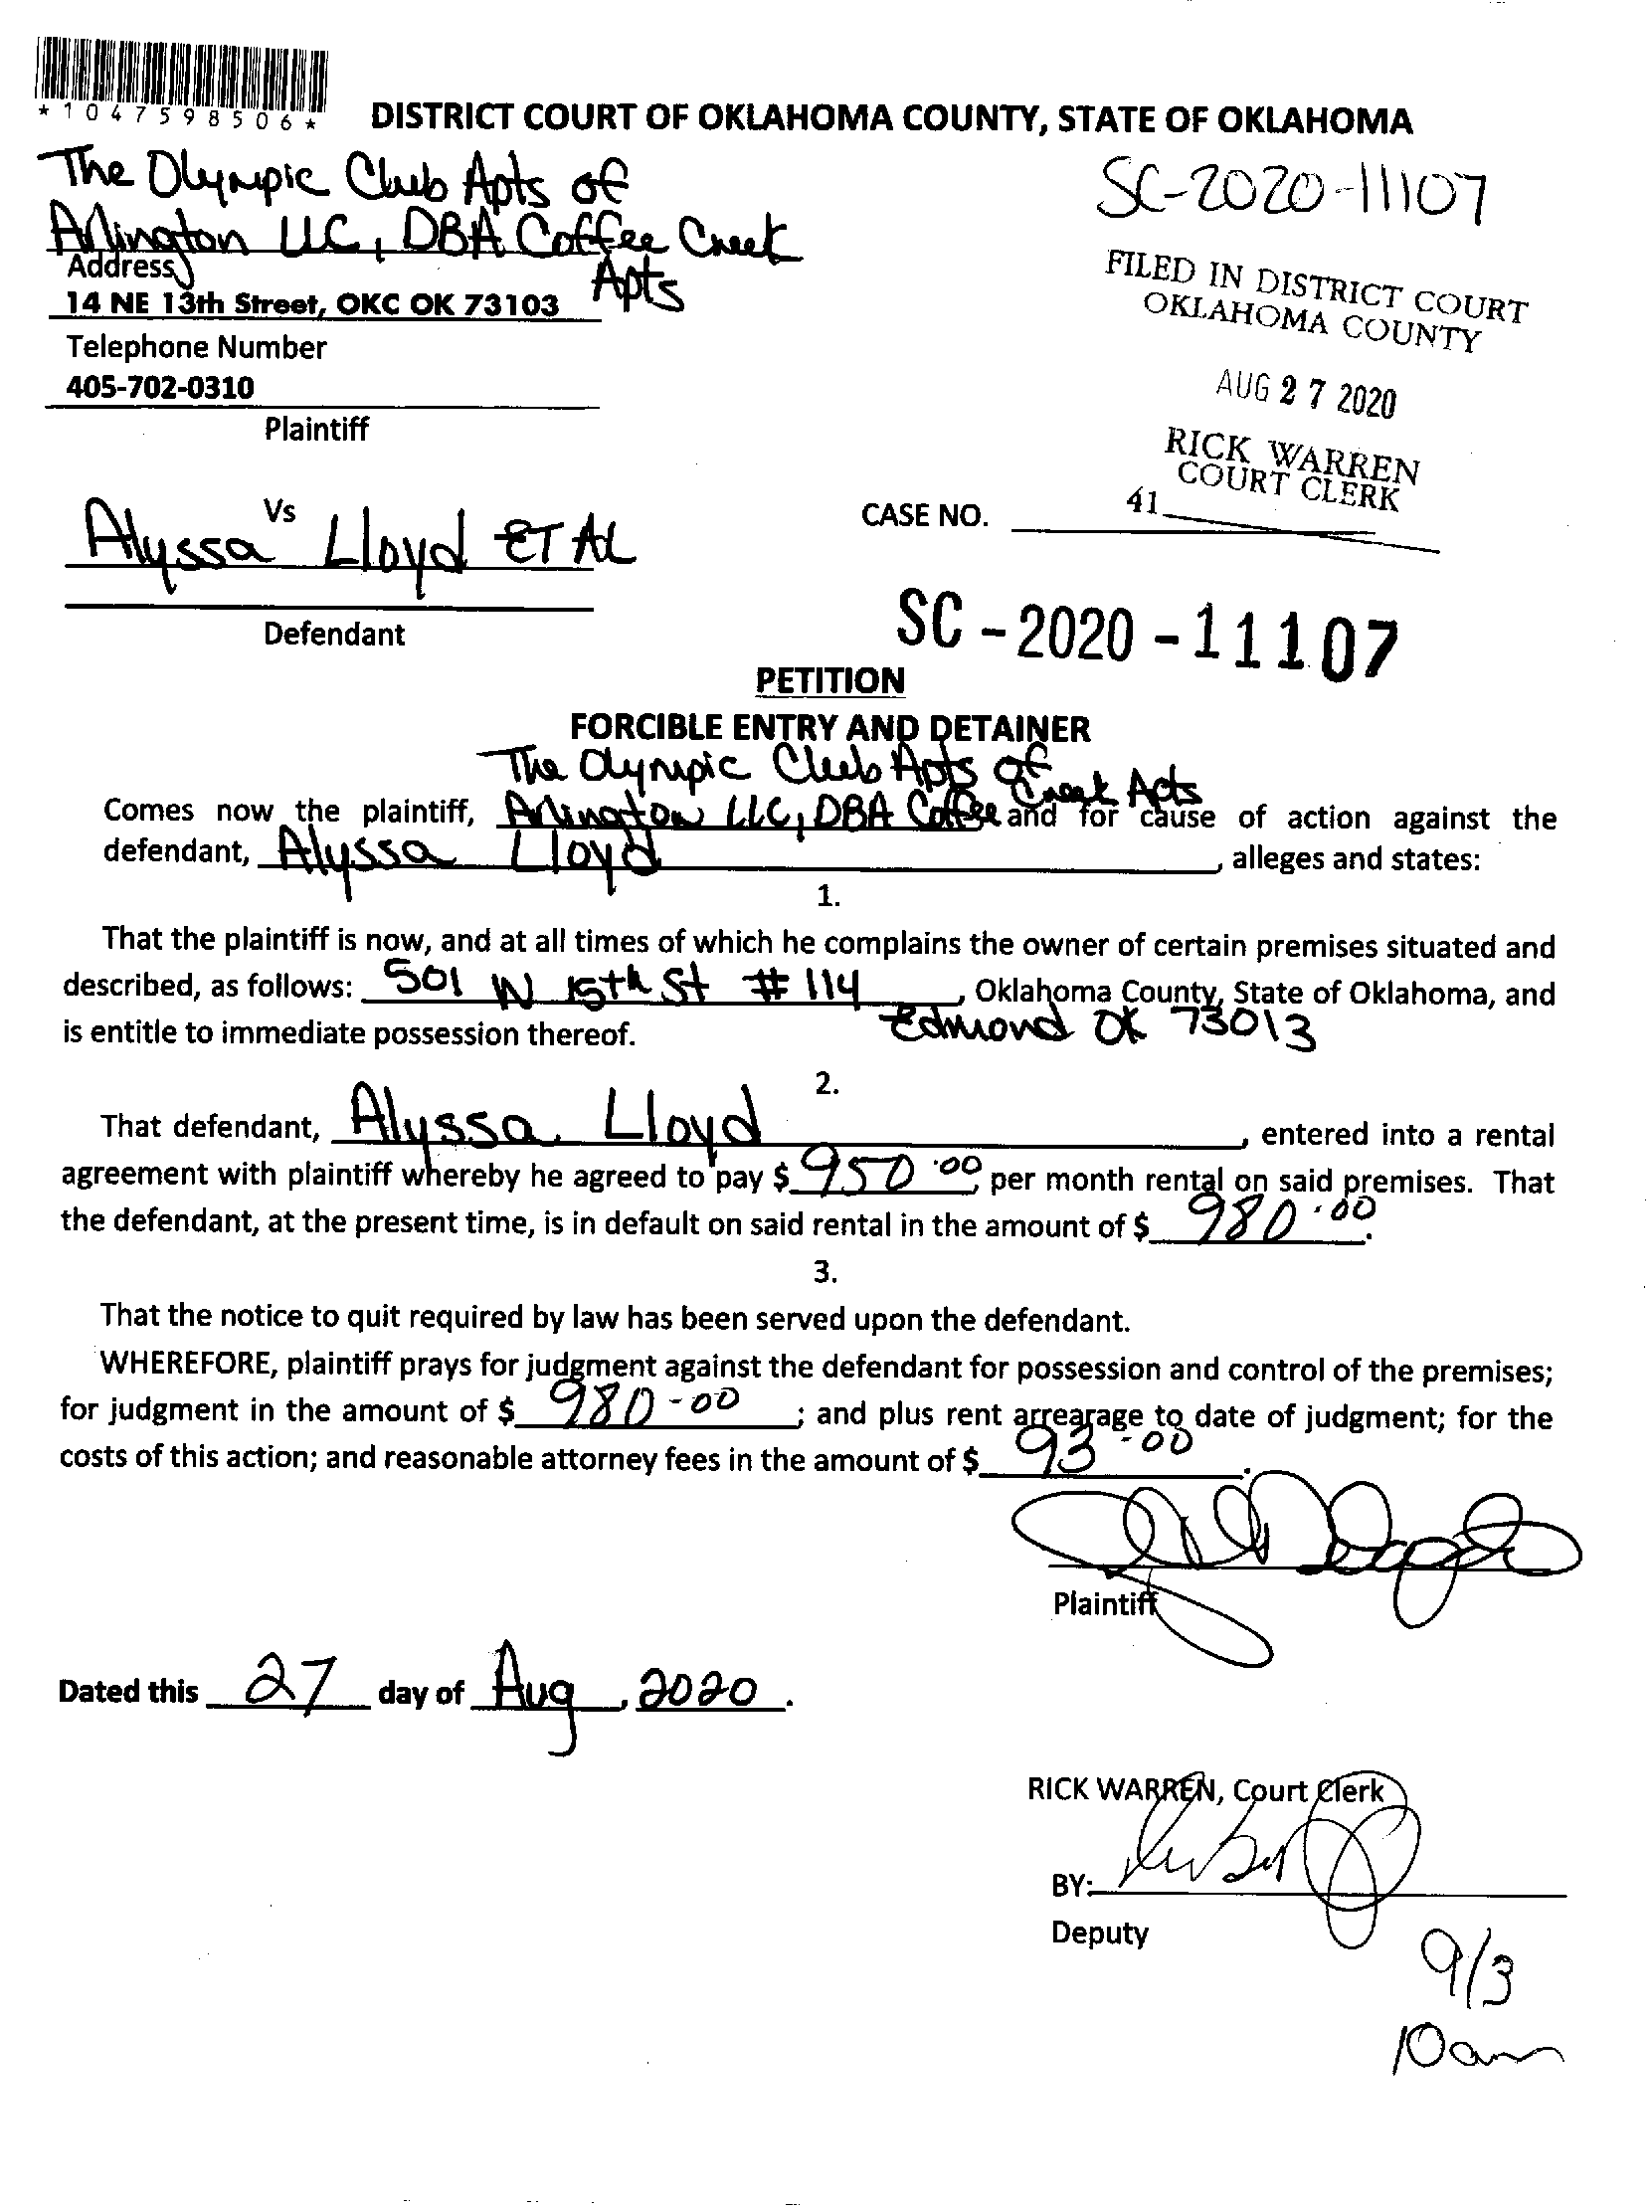 *1047598506*
DISTRICT COURT OF OKLAHOMA COUNTY, STATE OF OKLAHOMA
The Olympic Club Apts of
Arlington LLC, DBA Coffee Creek
Apts
SC-2020-11107
Address
14 NE 13th Street, OKC OK 73103
FILED IN DISTRICT COURT
OKLAHOMA COUNTY
Telephone Number
405-702-0310
AUG 27 2020
Plaintiff
RICK WARREN
COURT CLERK
41
Vs
CASE NO.
Alyssa Lloyd ET AL
Defendant
SC-2020-11107
PETITION
FORCIBLE ENTRY AND DETAINER
The Olympic Club Apts of
Comes now the plaintiff, Arlington LLC, DBA Coffee Creek Apts and for cause of action against the
defendant, Alyssa Lloyd, alleges and states:
1.
That the plaintiff is now, and at all times of which he complains the owner of certain premises situated and
described, as follows: 501 W 15th St # 114, Oklahoma County, State of Oklahoma, and
Edmond OK 73013
is entitle to immediate possession thereof.
2.
That defendant, Alyssa Lloyd, entered into a rental
agreement with plaintiff whereby he agreed to pay $ 950.00, per month rental on said premises. That
the defendant, at the present time, is in default on said rental in the amount of $ 980.00.
3.
That the notice to quit required by law has been served upon the defendant.
WHEREFORE, plaintiff prays for judgment against the defendant for possession and control of the premises;
for judgment in the amount of $ 980-00; and plus rent arrearage to date of judgment; for the
costs of this action; and reasonable attorney fees in the amount of $ 93-00.
Plaintiff
Dated this 27 day of Aug, 2020.
RICK WARREN, Court Clerk
BY:
Deputy
9/3
10am